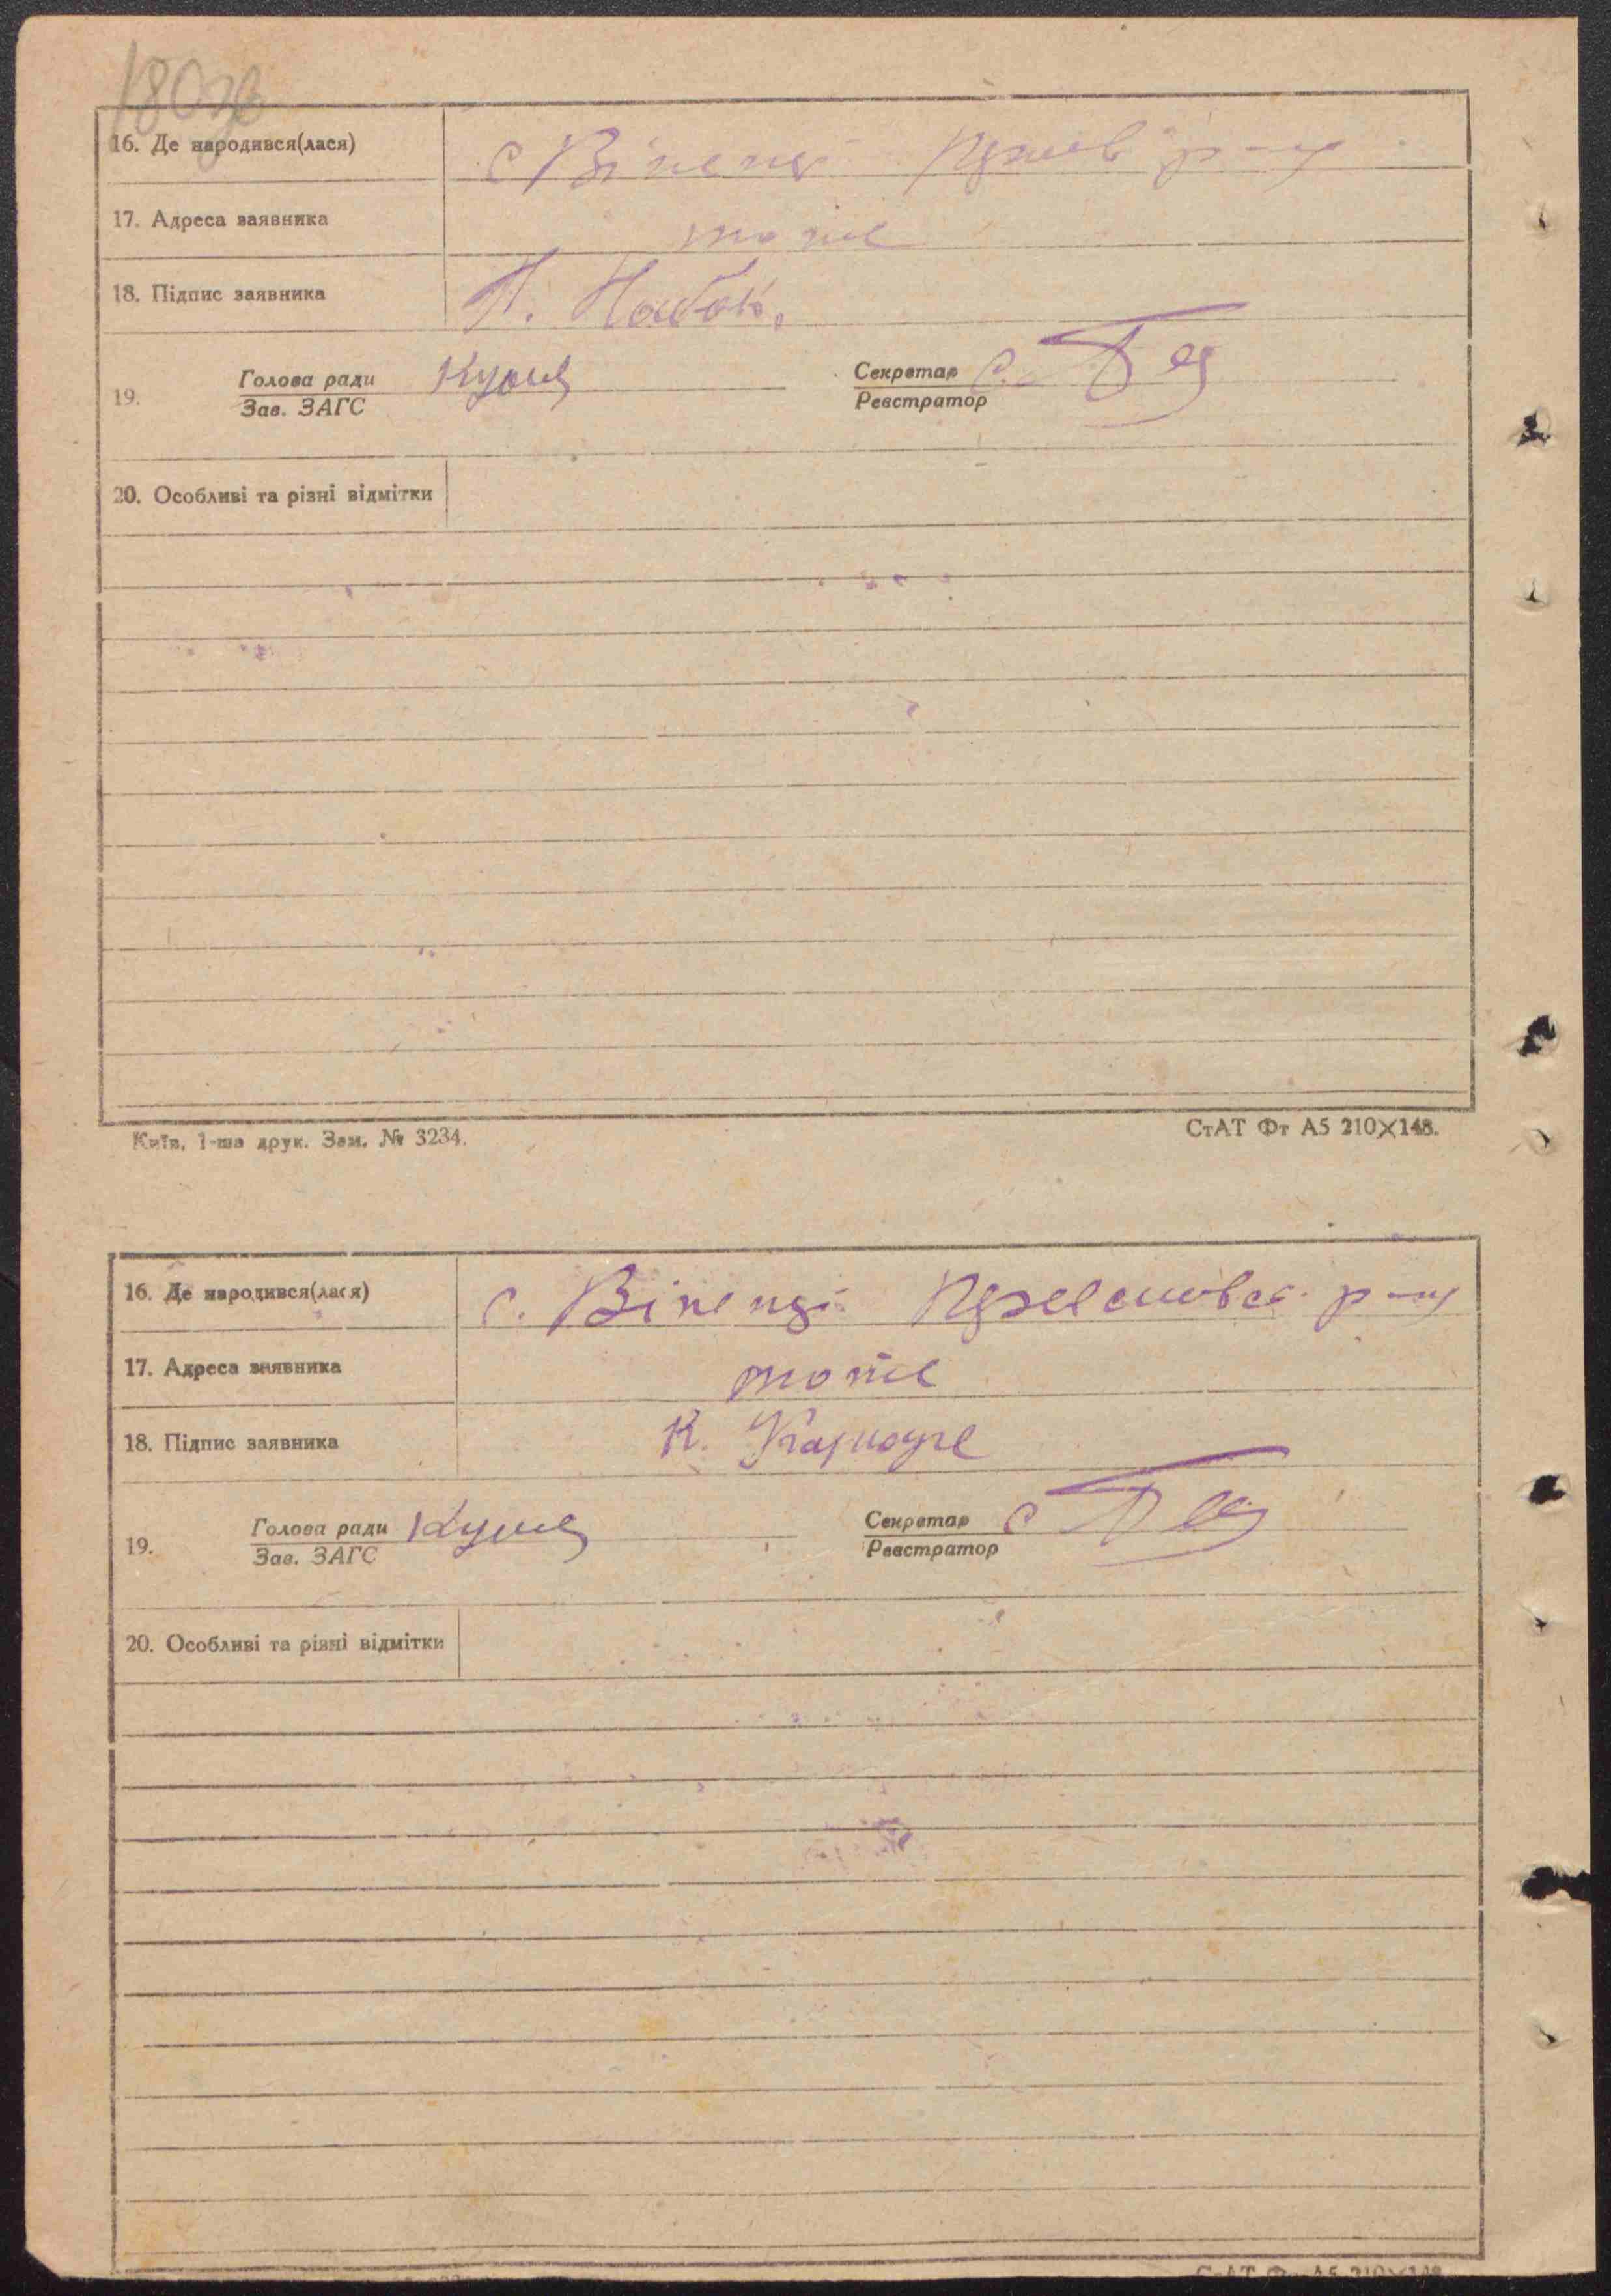 180зв
16. Де народився(лася) с Віненці р-ну
17. Адреса заявника тоже
18. Підпис заявника П. Набок.
19. Голова ради Секретар С.
Зав. ЗАГС Реєстратор
20. Особливі та різні відмітки
Київ, 1-ша друк. Зам. № 3234. СтАТ Фт А5 210×148.
16. Де народився(лася) с. Віненці р-ну
17. Адреса заявника тоже
18. Підпис заявника К.
19. Голова ради Секретар С
Зав. ЗАГС Реєстратор
20. Особливі та різні відмітки
СтАТ Фт А5 210×148